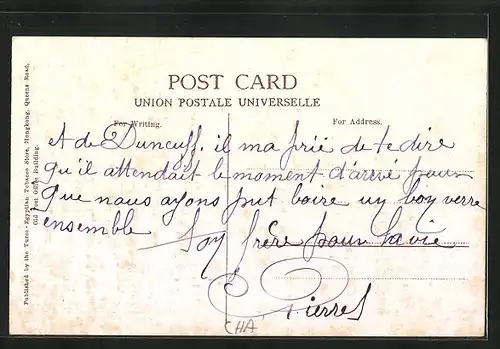 POST CARD
UNION POSTALE UNIVERSELLE
For Writing.
For Address.
et de Duncuff. il ma prié de te dire
qu'il attendait le moment d'arrivé pour
que nous ayons put boire un bon verre
ensemble
Ton frère pour la vie
Pierre
CHA
Published by the Turco-Egyptian Tobacco Store, Hongkong, Queens Road,
Old Post Office Building.